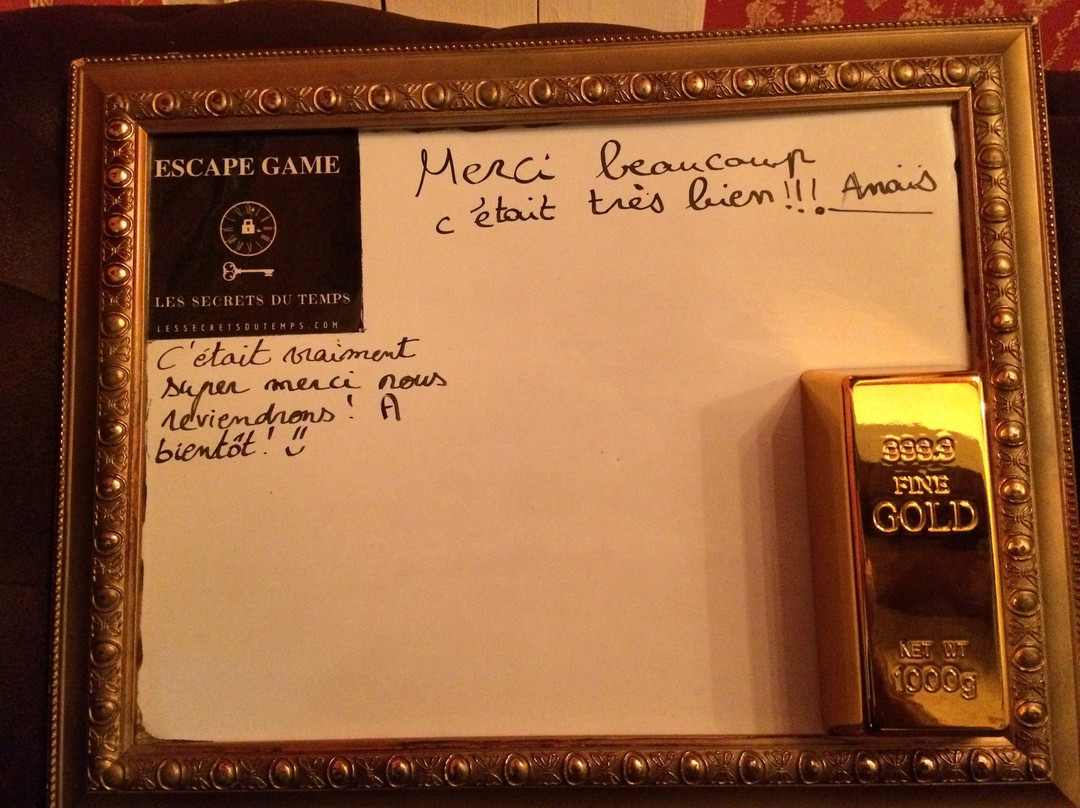 ESCAPE GAME
LES SECRETS DU TEMPS
LESSECRETSDUTEMPS.COM
Merci beaucoup
c'était très bien!!! Anaïs
C'était vraiment
super merci nous
reviendrons! A
bientôt! :)
999.9
FINE
GOLD
NET WT
1000g